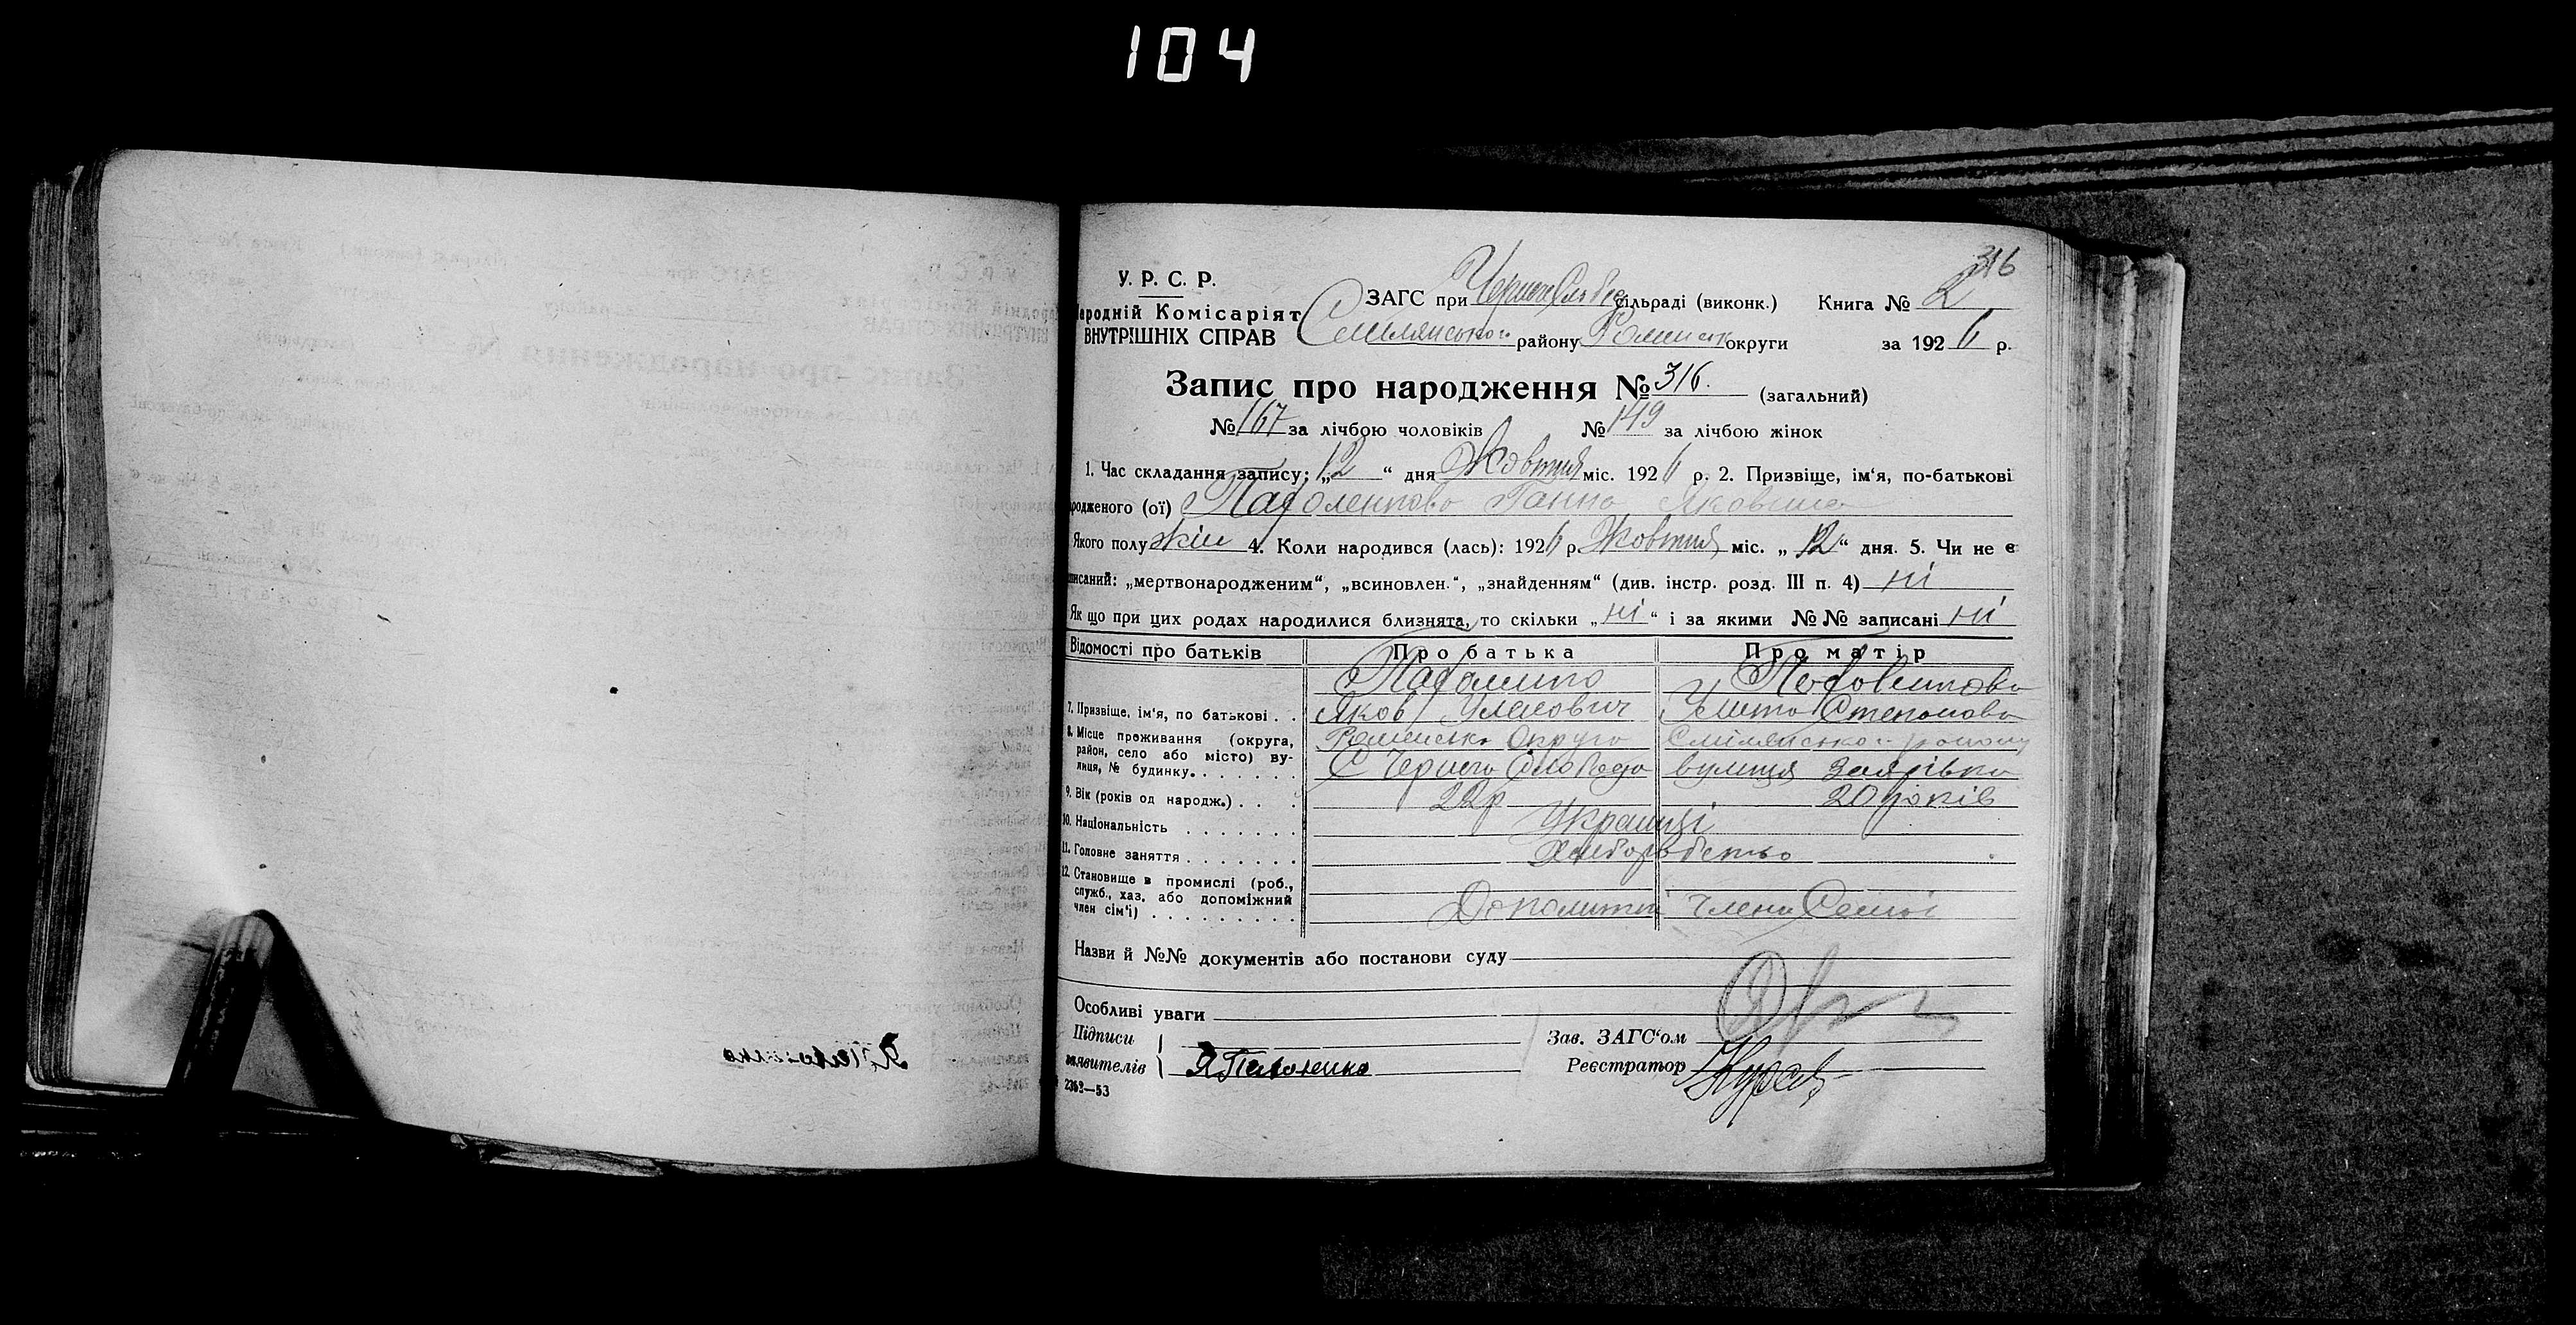 104
316
У. Р. С. Р.
Народній Комісаріят
ВНУТРІШНІХ СПРАВ
ЗАГС при сільраді (виконк.) Книга № 2
Смілянського району Роменськ округи за 1926 р.
Запис про народження № 316. (загальний)
№ 167 за лічбою чоловіків № 149 за лічбою жінок
1. Час складання запису: „12“ дня Жовтня міс. 1926 р. 2. Призвіще, ім'я, по-батькові
родженого (ої) Ганна Яковна
Якого полу жін 4. Коли народився (лась): 1926 р. Жовтня міс. „12“ дня. 5. Чи не є
писаний: „мертвонародженим“, „всиновлен.“, „знайденням“ (див. інстр. розд. III п. 4) ні
Як що при цих родах народилися близнята, то скільки „ні“ і за якими №№ записані ні
Відомості про батьків Про батька Про матір
7. Призвіще, ім'я, по батькові . . Яков Степанова
8. Місце проживання (округа, район, село або місто) вулиця, № будинку. Роменська Округа Смілянського району
С Черна Слобода вулиця
9. Вік (років од народж.) . . . 22р 20 років
10. Національність . . . . . . . Українці
11. Головне заняття . . . . . . . Хліборобство
12. Становище в промислі (роб., служб., хаз. або допоміжний член сім'ї) . . . . . . . . . члени Семьї
Назви й №№ документів або постанови суду
Особливі уваги
Підписи
заявителів
Зав. ЗАГС'ом
Реєстратор
2363—53